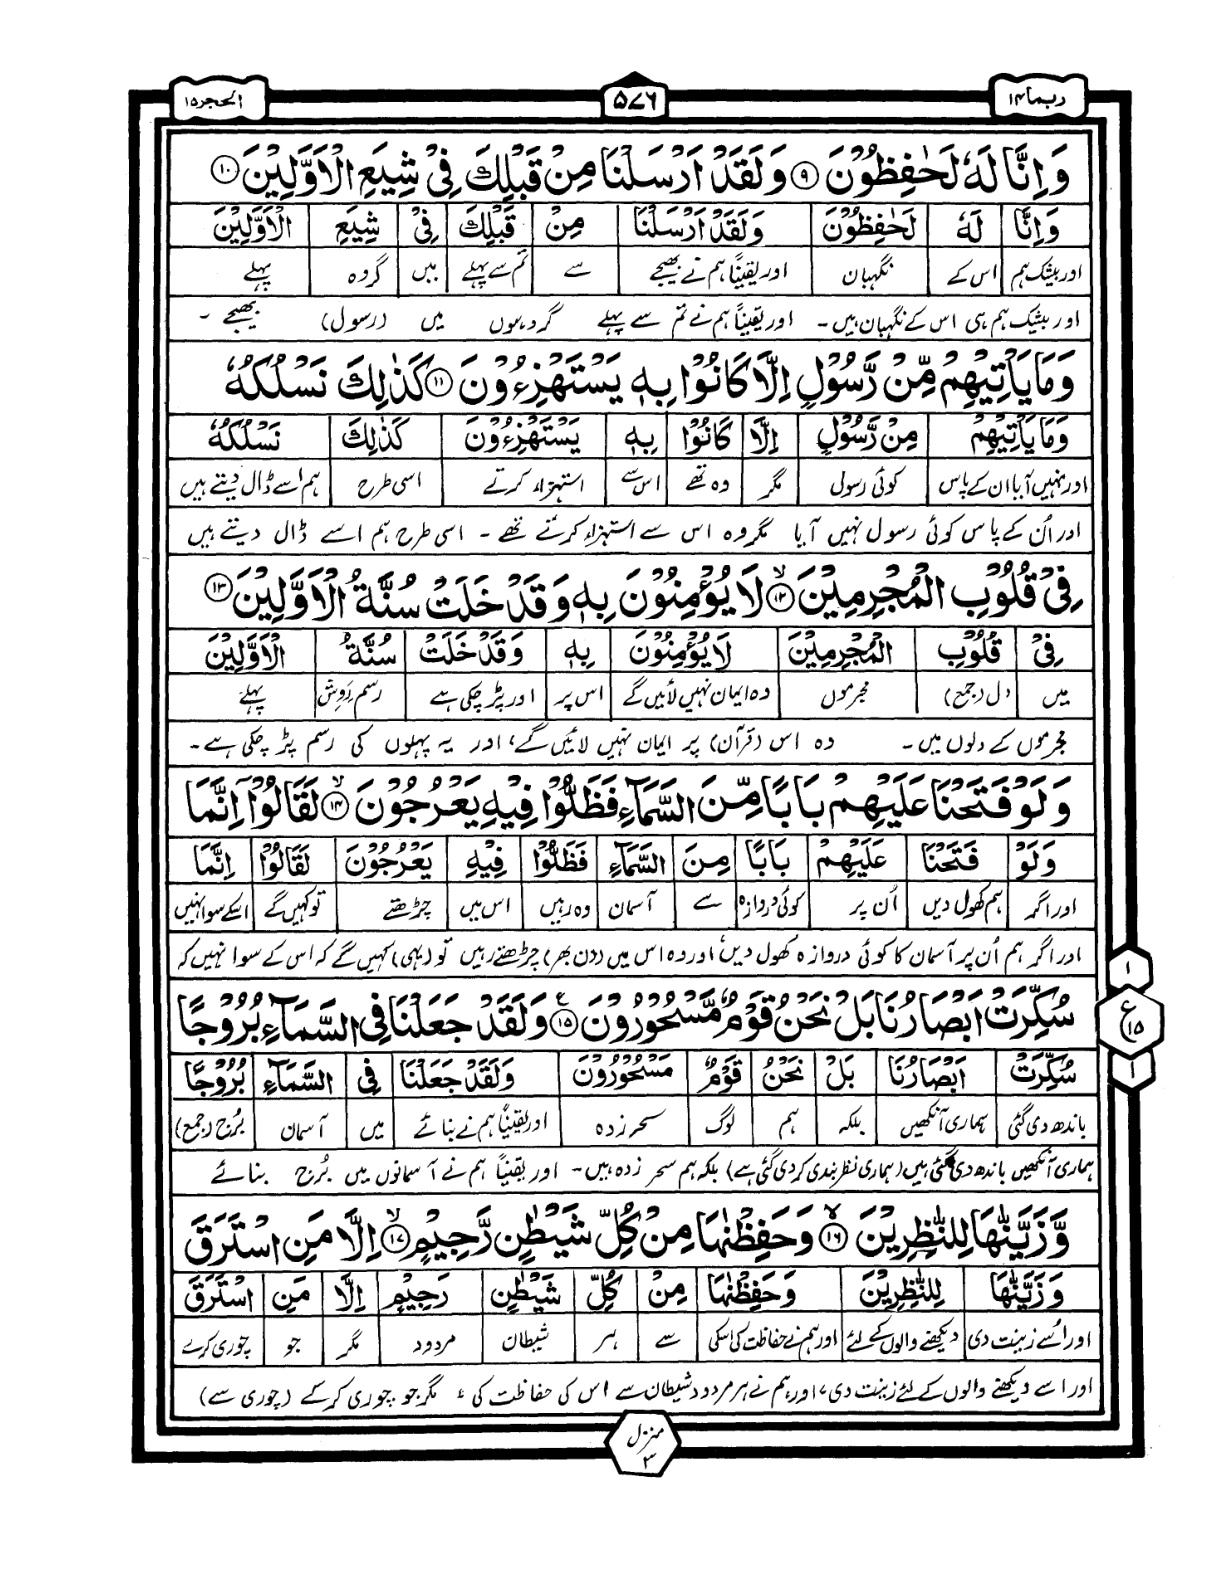 ربما ۱۴
۵۷۶
الحجر ۱۵
وَاِنَّا لَهٗ لَحٰفِظُوْنَ ۹ وَلَقَدْ اَرْسَلْنَا مِنْ قَبْلِكَ فِیْ شِیَعِ الْاَوَّلِیْنَ ۱۰
وَاِنَّا لَهٗ لَحٰفِظُوْنَ وَلَقَدْ اَرْسَلْنَا مِنْ قَبْلِكَ فِیْ شِیَعِ الْاَوَّلِیْنَ
اور بیشک ہم اس کے نگہبان اور یقیناً ہم نے بھیجے سے تم سے پہلے میں گروہ پہلے
اور بیشک ہم ہی اس کے نگہبان ہیں۔ اور یقیناً ہم نے تم سے پہلے گروہوں میں (رسول) بھیجے ۔
وَمَا یَاْتِیْهِمْ مِّنْ رَّسُوْلٍ اِلَّا كَانُوْا بِهٖ یَسْتَهْزِءُوْنَ ۱۱ كَذٰلِكَ نَسْلُكُهٗ
وَمَا یَاْتِیْهِمْ مِنْ رَّسُوْلٍ اِلَّا كَانُوْا بِهٖ یَسْتَهْزِءُوْنَ كَذٰلِكَ نَسْلُكُهٗ
اور نہیں آیا ان کے پاس کوئی رسول مگر وہ تھے اس سے استہزاء کرتے اسی طرح ہم اسے ڈال دیتے ہیں
اور اُن کے پاس کوئی رسول نہیں آیا مگر وہ اس سے استہزاء کرتے تھے ۔ اسی طرح ہم اسے ڈال دیتے ہیں
فِیْ قُلُوْبِ الْمُجْرِمِیْنَ ۱۲ لَا یُؤْمِنُوْنَ بِهٖ وَقَدْ خَلَتْ سُنَّةُ الْاَوَّلِیْنَ ۱۳
فِیْ قُلُوْبِ الْمُجْرِمِیْنَ لَا یُؤْمِنُوْنَ بِهٖ وَقَدْ خَلَتْ سُنَّةُ الْاَوَّلِیْنَ
میں دل (جمع) مجرموں وہ ایمان نہیں لائیں گے اس پر اور پڑ چکی ہے رسم رَوِش پہلے
مجرموں کے دلوں میں۔ وہ اس (قرآن) پر ایمان نہیں لائیں گے، اور یہ پہلوں کی رسم پڑ چکی ہے۔
وَلَوْ فَتَحْنَا عَلَیْهِمْ بَابًا مِّنَ السَّمَآءِ فَظَلُّوْا فِیْهِ یَعْرُجُوْنَ ۱۴ لَقَالُوْٓا اِنَّمَا
وَلَوْ فَتَحْنَا عَلَیْهِمْ بَابًا مِنَ السَّمَآءِ فَظَلُّوْا فِیْهِ یَعْرُجُوْنَ لَقَالُوْٓا اِنَّمَا
اور اگر ہم کھول دیں اُن پر کوئی دروازہ سے آسمان وہ رہیں اس میں چڑھتے تو کہیں گے اسکے سوا نہیں
اور اگر ہم اُن پر آسمان کا کوئی دروازہ کھول دیں اور وہ اس میں (دن بھر) چڑھتے رہیں تو (یہی) کہیں گے کہ اس کے سوا نہیں کہ
سُكِّرَتْ اَبْصَارُنَا بَلْ نَحْنُ قَوْمٌ مَّسْحُوْرُوْنَ ۱۵ وَلَقَدْ جَعَلْنَا فِی السَّمَآءِ بُرُوْجًا
سُكِّرَتْ اَبْصَارُنَا بَلْ نَحْنُ قَوْمٌ مَسْحُوْرُوْنَ وَلَقَدْ جَعَلْنَا فِی السَّمَآءِ بُرُوْجًا
باندھ دی گئی ہماری آنکھیں بلکہ ہم لوگ سحر زدہ اور یقیناً ہم نے بنائے میں آسمان بُرج (جمع)
ہماری آنکھیں باندھ دی گئی ہیں (ہماری نظر بندی کر دی گئی ہے) بلکہ ہم سحر زدہ ہیں۔ اور یقیناً ہم نے آسمانوں میں بُرج بنائے
وَّزَیَّنّٰهَا لِلنّٰظِرِیْنَ ۱۶ وَحَفِظْنٰهَا مِنْ كُلِّ شَیْطٰنٍ رَّجِیْمٍ ۱۷ اِلَّا مَنِ اسْتَرَقَ
وَزَیَّنّٰهَا لِلنّٰظِرِیْنَ وَحَفِظْنٰهَا مِنْ كُلِّ شَیْطٰنٍ رَجِیْمٍ اِلَّا مَنِ اسْتَرَقَ
اور اُسے زینت دی دیکھنے والوں کے لئے اور ہم نے حفاظت کی اسکی سے ہر شیطان مردود مگر جو چوری کرے
اور اسے دیکھنے والوں کے لئے زینت دی، اور ہم نے ہر مردود شیطان سے اس کی حفاظت کی، مگر جو چوری کر کے (چوری سے)
۱
ع ۱۵
۱
منزل ۳